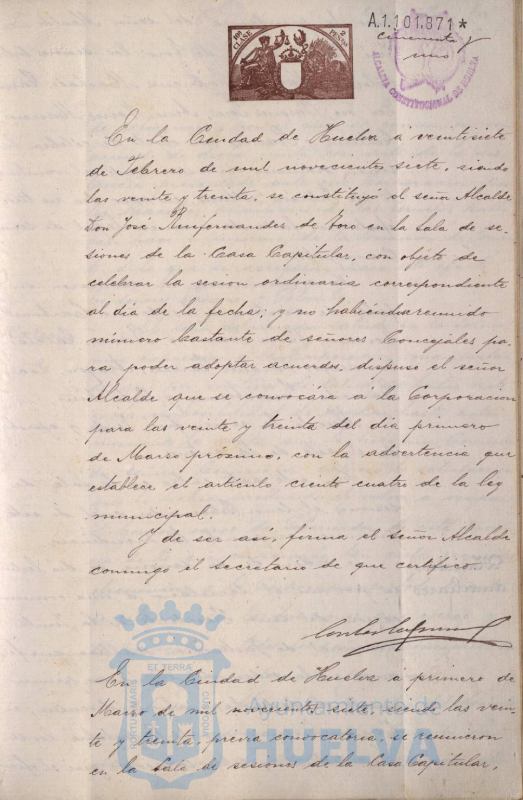 10ª
CLASE
2
PESETAS
A.1.101.871*
cincuenta y
uno
ALCALDIA CONSTITUCIONAL DE HUELVA
En la Ciudad de Huelva á veintisiete
de Febrero de mil novecientos siete, siendo
las veinte y treinta, se constituyó el señor Alcalde
Don José de Toro en la Sala de se-
siones de la Casa Capitular, con objeto de
celebrar la sesion ordinaria correspondiente
al dia de la fecha; y no habiendose reunido
número bastante de señores Concejales pa-
ra poder adoptar acuerdos, dispuso el señor
Alcalde que se convocára á la Corporacion
para las veinte y treinta del dia primero
de Marzo próximo, con la advertencia que
establece el artículo ciento cuatro de la ley
municipal.
Y de ser así, firma el señor Alcalde
conmigo el Secretario de que certifico.
En la Ciudad de Huelva a primero de
Marzo de mil novecientos siete, siendo las vein-
te y treinta, previa convocatoria, se reunieron
en la Sala de sesiones de la Casa Capitular,
ET TERRÆ
PORTUS MARIS
CUSTODIA
Ayuntamiento de
HUELVA